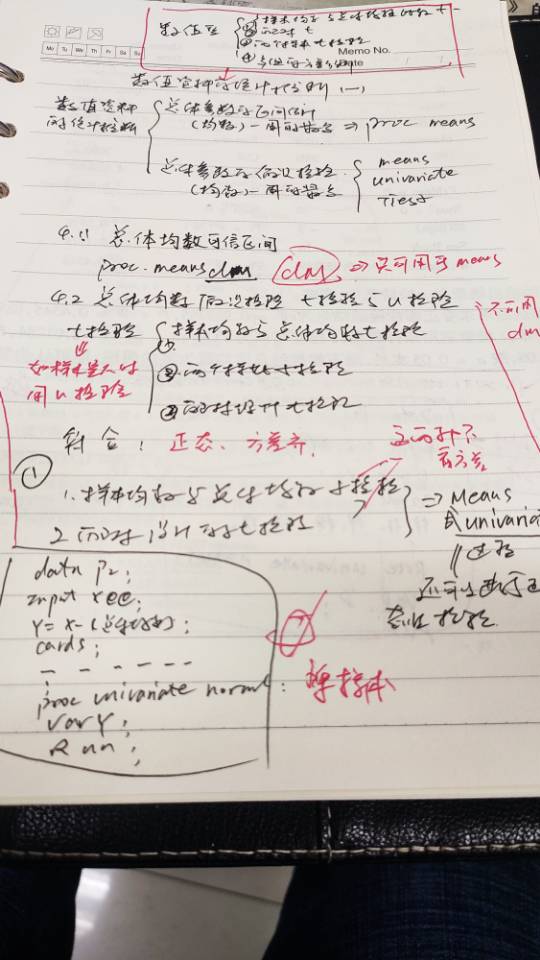 数值型
① 样本均数与总体均数比较 t
② 配对 t
③ 两个样本 t 检验
Mo Tu We Th Fr Sa Su
Memo No.
Date / /
数值资料的统计推断 (一)
数值资料的统计推断
总体参数的区间估计
(均数)—用可信区间 ⇒ proc means
总体参数的假设检验
(均数)
means
univariate
ttest
4.1 总体均数可信区间
proc means clm (clm) ⇒ 只可用于 means
4.2 总体均数假设检验 t检验与u检验
不可用
t检验
① 样本均数与总体均数t检验
② 两个样本t检验
③ 配对设计t检验
如样本量大时
用u检验
符合: 正态、方差齐.
①
1. 样本均数与总体均数t检验
2. 配对设计的t检验
⇒ Means
或 univariate
过程
还可以进行正
态性检验
data p2;
input x @@;
Y= x-(总体均数);
cards;
- - - - - -
;
proc univariate normal;
var Y;
Run;
单样本